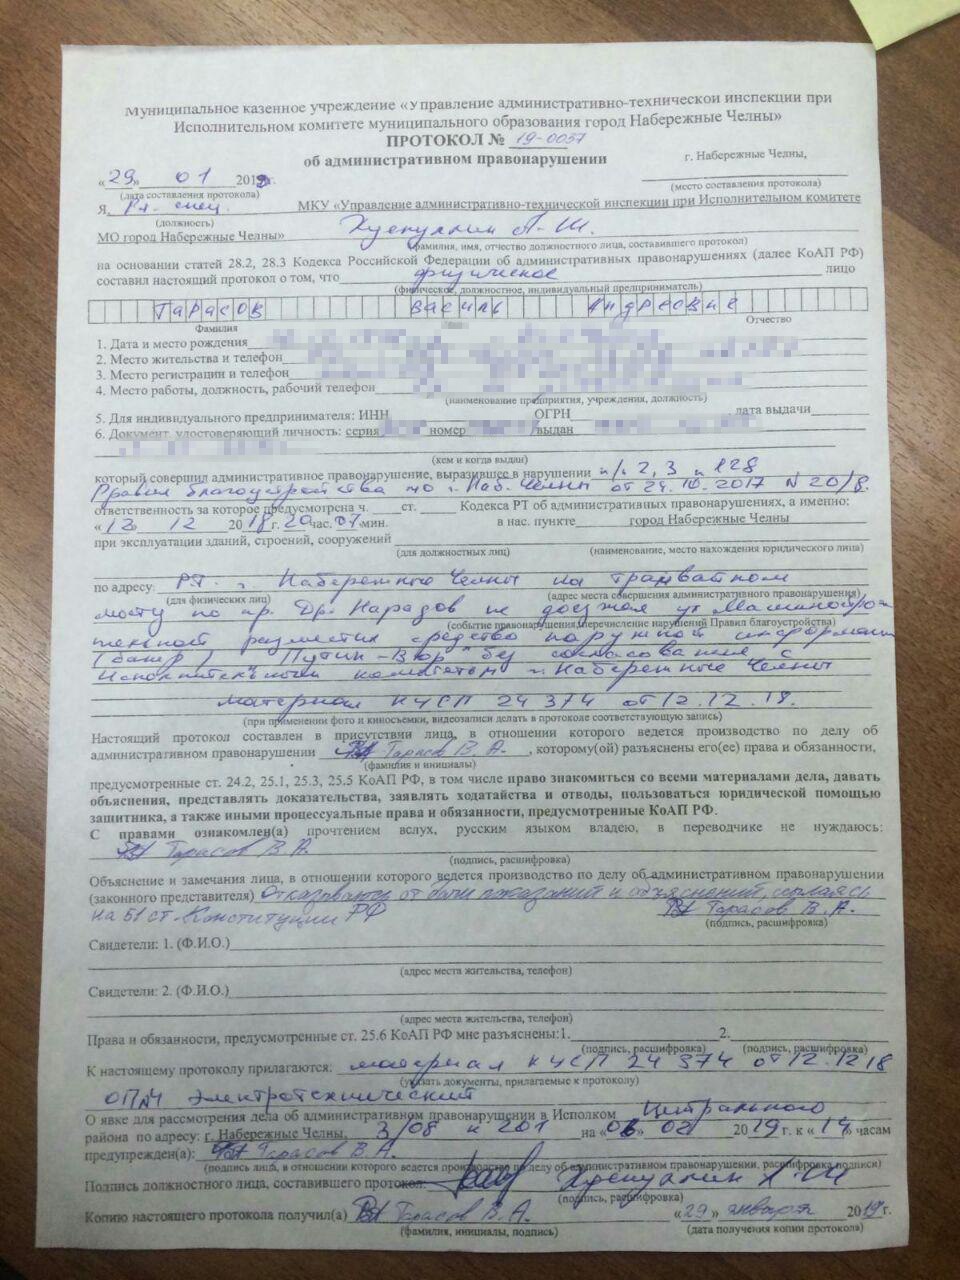 Муниципальное казенное учреждение «Управление административно-технической инспекции при
Исполнительном комитете муниципального образования город Набережные Челны»
ПРОТОКОЛ № 19-0057
об административном правонарушении
г. Набережные Челны,
«29» 01 2019г.
(дата составления протокола)
(место составления протокола)
Я, Гл. спец. МКУ «Управление административно-технической инспекции при Исполнительном комитете
(должность)
МО город Набережные Челны»
(фамилия, имя, отчество должностного лица, составившего протокол)
на основании статей 28.2, 28.3 Кодекса Российской Федерации об административных правонарушениях (далее КоАП РФ)
составил настоящий протокол о том, что физическое лицо
(физическое, должностное, индивидуальный предприниматель)
Тарасов Василь Андреевич
Фамилия Отчество
1. Дата и место рождения
2. Место жительства и телефон
3. Место регистрации и телефон
4. Место работы, должность, рабочий телефон
(наименование предприятия, учреждения, должность)
5. Для индивидуального предпринимателя: ИНН ОГРН , дата выдачи
6. Документ, удостоверяющий личность: серия номер выдан
(кем и когда выдан)
который совершил административное правонарушение, выразившее в нарушении п/п 2, 3 п 128
Правил благоустройства по г. Наб. Челны от 24.10.2017 N 20/8.
ответственность за которое предусмотрена ч. ст. Кодекса РТ об административных правонарушениях, а именно:
«12» 12 2018г. 20 час. 07 мин. в нас. пункте город Набережные Челны
при эксплуатации зданий, строений, сооружений
(для должностных лиц) (наименование, место нахождения юридического лица)
по адресу: РТ г. Набережные Челны на трамвайном
(для физических лиц) (адрес места совершения административного правонарушения)
мосту по пр. Др. Народов не доезжая ул Машинострои
(событие правонарушения, перечисление нарушений Правил благоустройства)
тельной разместил средство наружной информации
(банер) "Путин-Вор" без согласования с
Исполнительным комитетом г. Набережные Челны
материал КУСП 24 374 от 12.12.18.
(при применении фото и киносъемки, видеозаписи делать в протоколе соответствующую запись)
Настоящий протокол составлен в присутствии лица, в отношении которого ведется производство по делу об
административном правонарушении Тарасов В.А. , которому(ой) разъяснены его(ее) права и обязанности,
(фамилия и инициалы)
предусмотренные ст. 24.2, 25.1, 25.3, 25.5 КоАП РФ, в том числе право знакомиться со всеми материалами дела, давать
объяснения, представлять доказательства, заявлять ходатайства и отводы, пользоваться юридической помощью
защитника, а также иными процессуальные права и обязанности, предусмотренные КоАП РФ.
С правами ознакомлен(а) прочтением вслух, русским языком владею, в переводчике не нуждаюсь:
Тарасов В.А.
(подпись, расшифровка)
Объяснение и замечания лица, в отношении которого ведется производство по делу об административном правонарушении
(законного представителя) Отказываюсь от дачи показаний и объяснений, ссылаясь
на 51 ст. Конституции РФ Тарасов В.А.
(подпись, расшифровка)
Свидетели: 1. (Ф.И.О.)
(адрес места жительства, телефон)
Свидетели: 2. (Ф.И.О.)
(адрес места жительства, телефон)
Права и обязанности, предусмотренные ст. 25.6 КоАП РФ мне разъяснены:1. 2.
(подпись, расшифровка) (подпись, расшифровка)
К настоящему протоколу прилагаются: материал КУСП 24 374 от 12.12.18
(указать документы, прилагаемые к протоколу)
Электротехнический
О явке для рассмотрения дела об административном правонарушении в Исполком Центрального
района по адресу: г. Набережные Челны, 3/08 к 201 на «06» 02 2019 г. к «14» часам
предупрежден(а): Тарасов В.А.
(подпись лица, в отношении которого ведется производство по делу об административном правонарушении, расшифровка подписи)
Подпись должностного лица, составившего протокол:
(подпись, расшифровка)
Копию настоящего протокола получил(а) Тарасов В.А. «29» января 2019г.
(фамилия, инициалы, подпись) (дата получения копии протокола)